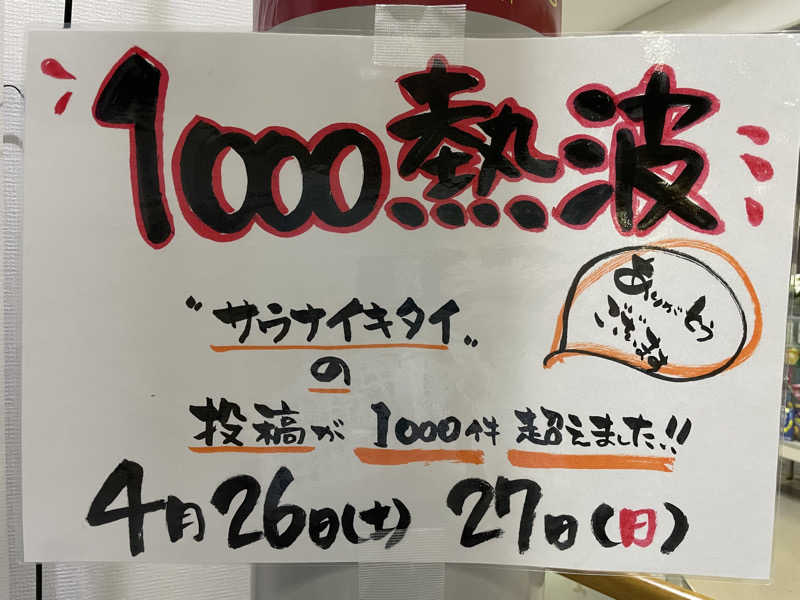 1000熱波
ありがとう
ございます
"サウナイキタイ"
の
投稿が1000件超えました!!
4月26日(土) 27日(日)